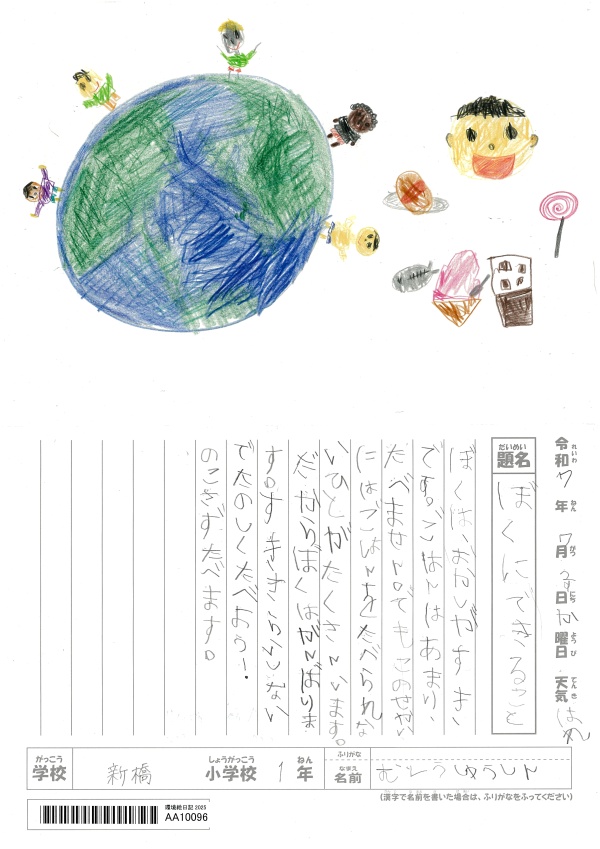 令和7年7月 日か曜日 天気はれ
れいわ ねん がつ にち ようび てんき
だいめい
題名 ぼくにできること
ぼくは、おかしがすき
です。ごはんはあまり、
たべません。でもこのせかい
にはごはんをたべられな
いひとがたくさんいます。
だからぼくはがんばりま
す。すききらいしない
でたのしくたべよう!
のこさずたべます。
がっこう しょうがっこう ねん
学校 新橋 小学校 1年
ふりがな
なまえ
名前 むとうゆうしん
(漢字で名前を書いた場合は、ふりがなをふってください)
環境絵日記 2025
AA10096